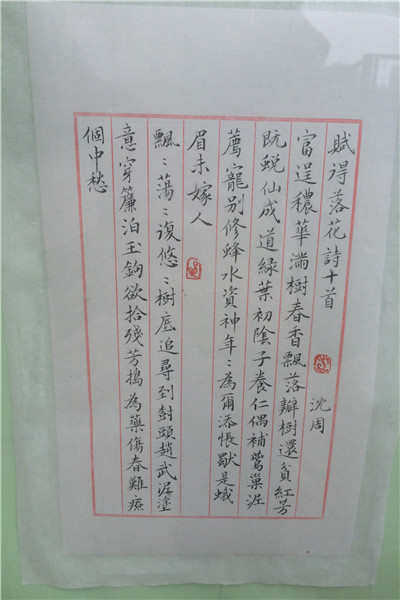 賦得落花詩十首 沈周
富逞穠華滿樹春香飄落瓣樹還貧紅芳
既蛻仙成道綠葉初陰子養仁偶補鶯巢泥
薦寵別修蜂水資神年〻為爾添悵是蛾
眉未嫁人
飄〻蕩〻復悠〻樹底追尋到尌頭趙武泥塗
意穿簾泊玉鉤欲拾殘芳搗為藥傷春難療
個中愁